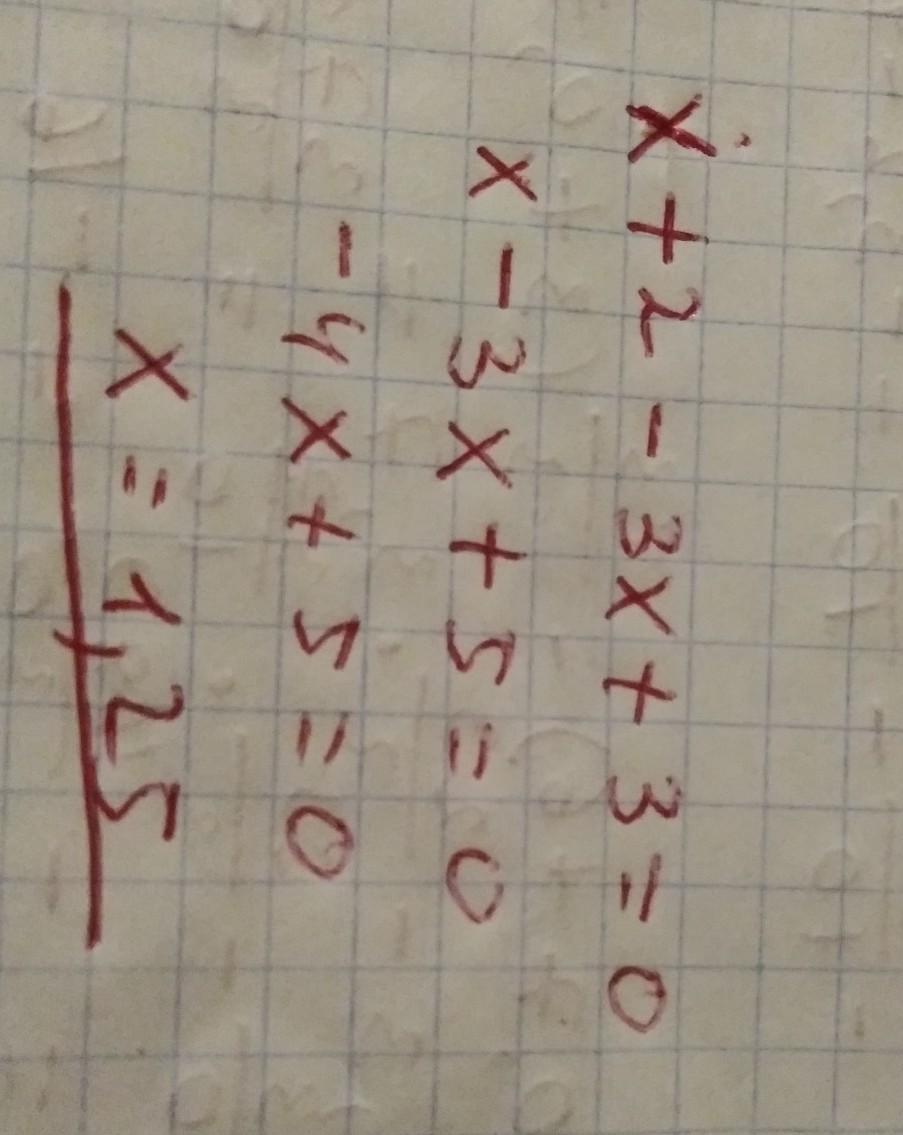 x + 2 - 3x + 3 = 0
x - 3x + 5 = 0
- 4x + 5 = 0
x = 1,25